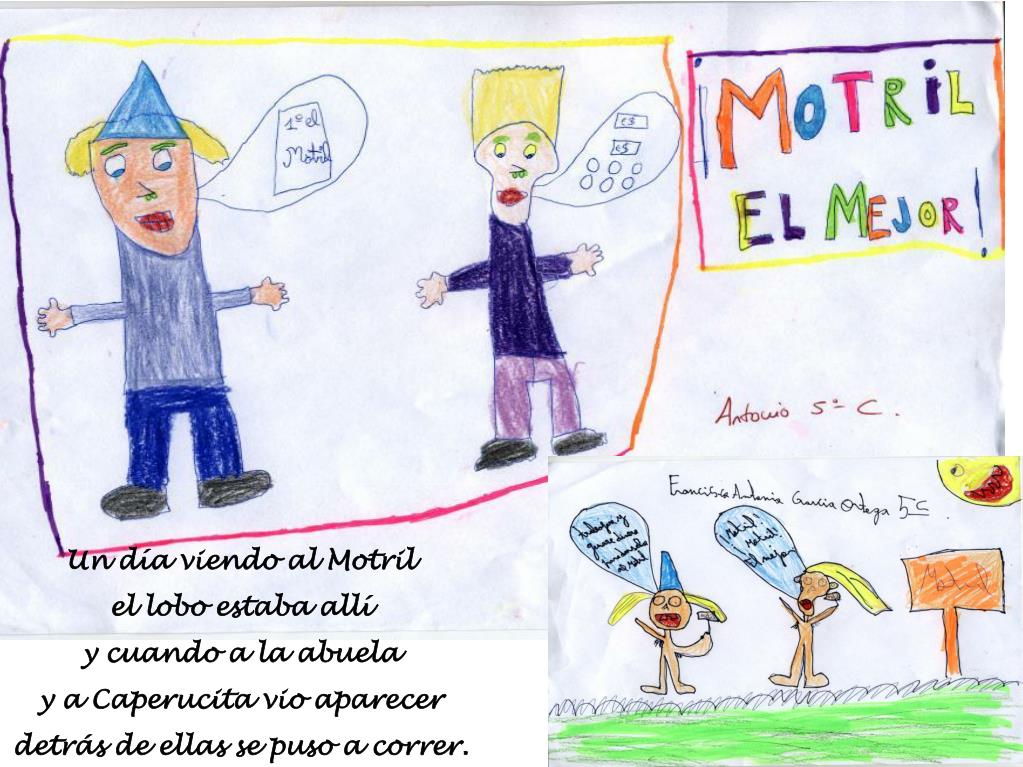 1º el
Motril
€$
€$
¡MOTRIL
EL MEJOR!
Antonio 5º C.
Francisca Antonia Garcia Ortega 5º C.
Motril
Motril
El mejor
Motril
Un día viendo al Motril
el lobo estaba allí
y cuando a la abuela
y a Caperucita vio aparecer
detrás de ellas se puso a correr.